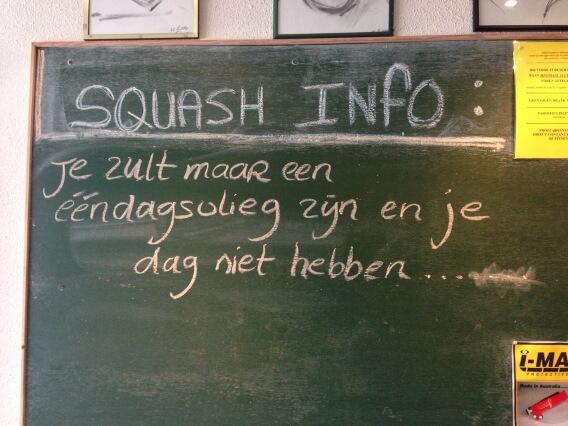 SQUASH INFO :
Je zult maar een
ééndagsvlieg zijn en je
dag niet hebben ....
i-MA
PROTECTIVE
Made in Australia